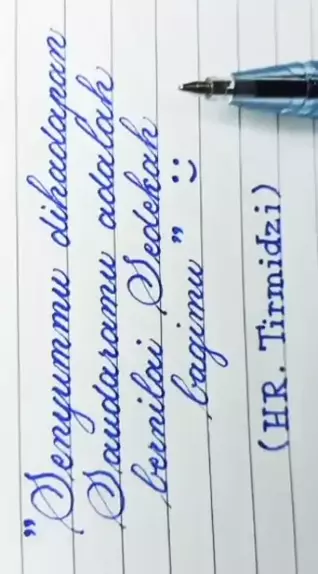 "Senyummu dihadapan
Saudaramu adalah
bernilai Sedekah
bagimu" :)
(HR. Tirmidzi)